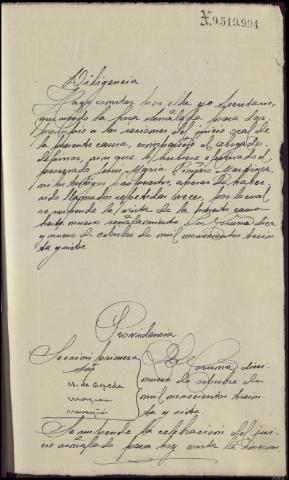 X.9.519.994
Diligencia.
Hago constar por ella yo Secretario,
que siendo la hora señalada para dar
principio a las sesiones del juicio oral de
la presente causa, compareció el abogado
defensor, sin que lo hubiere efectuado el
procesado Jesus Maria Piñeiro Martinez,
ni los testigos propuestos, apesar de haber
sido llamados repetidas veces, por lo cual
se suspende la vista de la presente causa
hasta nuevo señalamiento. La Coruña diez
y nueve de octubre de mil novecientos trein
ta y siete
Providencia
Sección primera
Sres
de Cepeda
La Coruña, diez
nueve de octubre de
mil novecientos trein
ta y siete.
Se suspende la celebración del jui
cio señalado para hoy vista la